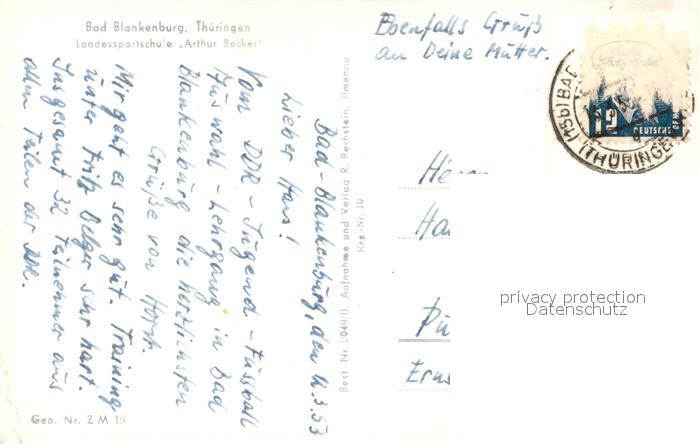 Bad Blankenburg, Thüringen
Landessportschule „Arthur Becker"
Bad-Blankenburg, den 11.3.53
Lieber Hans!
Vom DDR-Jugend-Fussball
Auswahl-Lehrgang in Bad
Blankenburg die herzlichsten
Grüße von Horst.
Mir geht es sehr gut. Training
unter Fritz Belger sehr hart.
Insgesamt 32 Teilnehmer aus
allen Teilen der DDR.
Gen. Nr. Z M 19
Best.-Nr. 2049/II. Aufnahme und Verlag R. Bechstein, Ilmenau
Reg.-Nr. 10
Ebenfalls Gruß
an Deine Mutter.
12 DEUTSCHE DEM
(15b) BAD
(THÜRINGE
He
Ha
Pu
Erns
privacy protection
Datenschutz